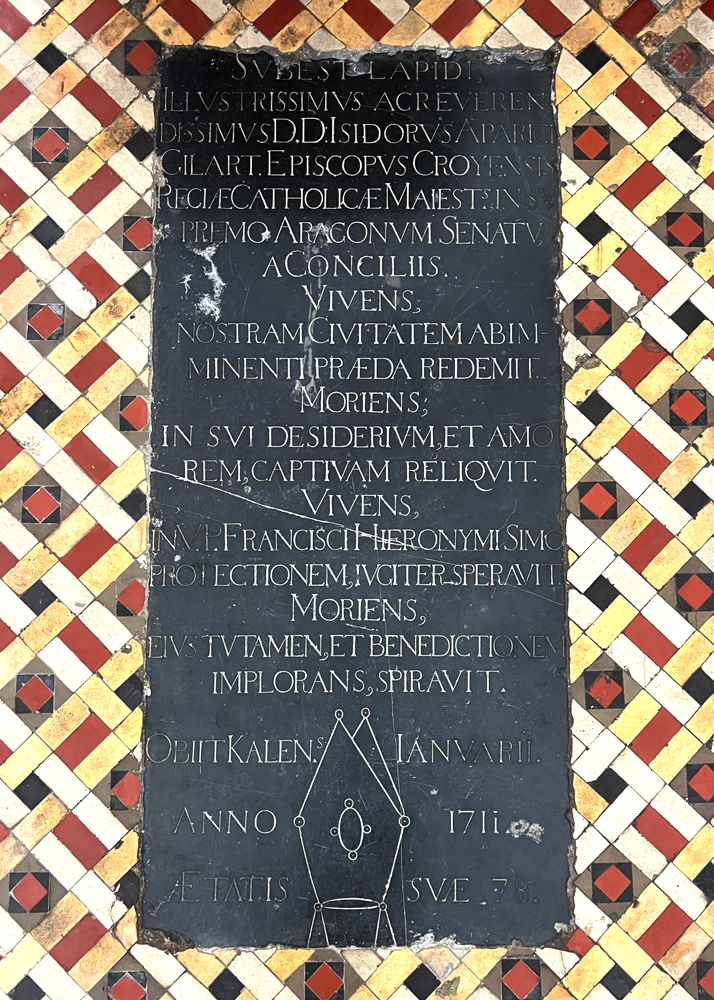 SVBEST LAPIDI
ILLVSTRISSIMVS AC REVEREN
DISSIMVS D.D. ISIDORVS APARICI
GILART. EPISCOPVS CROYENSIS
REGIÆ CATHOLICÆ MAIEST.S, IN SV
PREMO ARAGONVM SENATV,
A CONCILIIS.
VIVENS;
NOSTRAM CIVITATEM AB IM-
MINENTI PRÆDA REDEMIT.
MORIENS;
IN SVI DESIDERIVM, ET AMO
REM, CAPTIVAM RELIQVIT.
VIVENS,
IN V.P. FRANCISCI HIERONYMI SIMO
PROTECTIONEM, IVGITER SPERAVIT.
MORIENS,
EIVS TVTAMEN, ET BENEDICTIONEM
IMPLORANS, SPIRAVIT.
OBIIT KALEN.S IANVARII.
ANNO 1711.
ÆTATIS SVÆ 78.